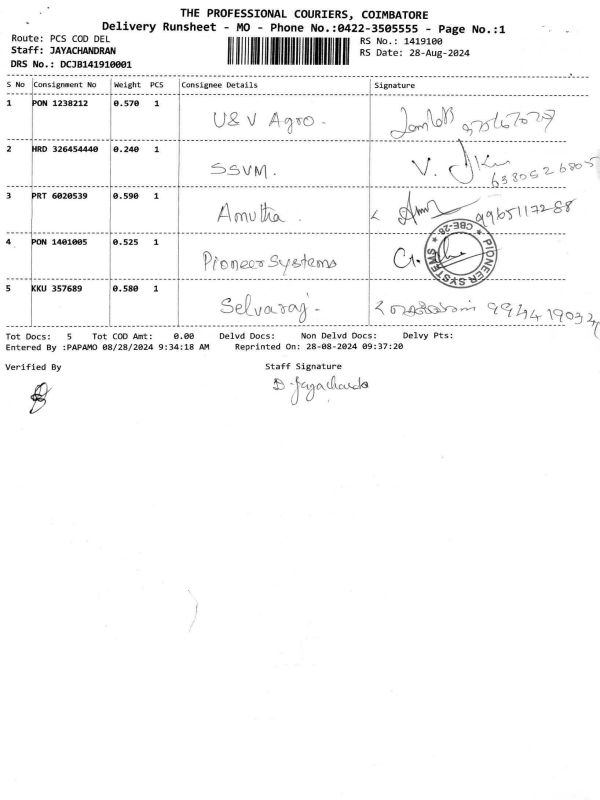 THE PROFESSIONAL COURIERS, COIMBATORE
Delivery Runsheet - MO - Phone No.:0422-3505555 - Page No.:1
Route: PCS COD DEL RS No.: 1419100
Staff: JAYACHANDRAN RS Date: 28-Aug-2024
DRS No.: DCJB141910001
S No Consignment No Weight PCS Consignee Details Signature
1 PON 1238212 0.570 1 U&V Agro.
2 HRD 326454440 0.240 1 SSVM. V. 6380526805
3 PRT 6020539 0.590 1 Amutha. 9965117288
4 PON 1401005 0.525 1 Pioneer Systems G. PIONEER SYSTEMS * CBE-28 *
5 KKU 357689 0.580 1 Selvaraj.
Tot Docs: 5 Tot COD Amt: 0.00 Delvd Docs: Non Delvd Docs: Delvy Pts:
Entered By :PAPAMO 08/28/2024 9:34:18 AM Reprinted On: 28-08-2024 09:37:20
Verified By Staff Signature